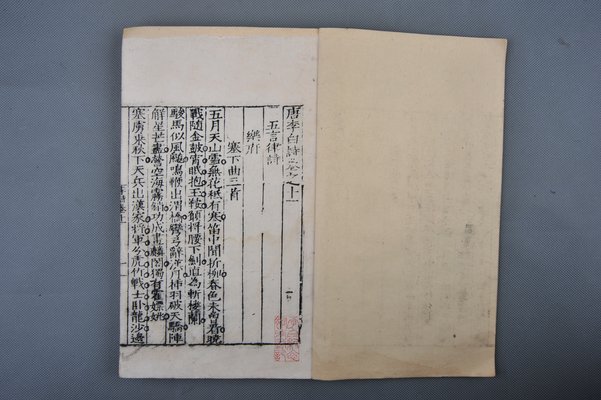 唐李白詩卷之十一
五言律詩
樂府
塞下曲三首
五月天山雪無花秪有寒笛中聞折柳春色未曾看曉
戰隨金皷宵眠抱玉鞍願將腰下劍直為斬樓蘭
駿馬似風飈鳴鞭出渭橋彎弓辭漢月插羽破天驕陣
解星芒盡營空海霧消功成畫麟閣獨有霍嫖姚
塞虜乘秋下天兵出漢家將軍分虎竹戰士臥龍沙邊